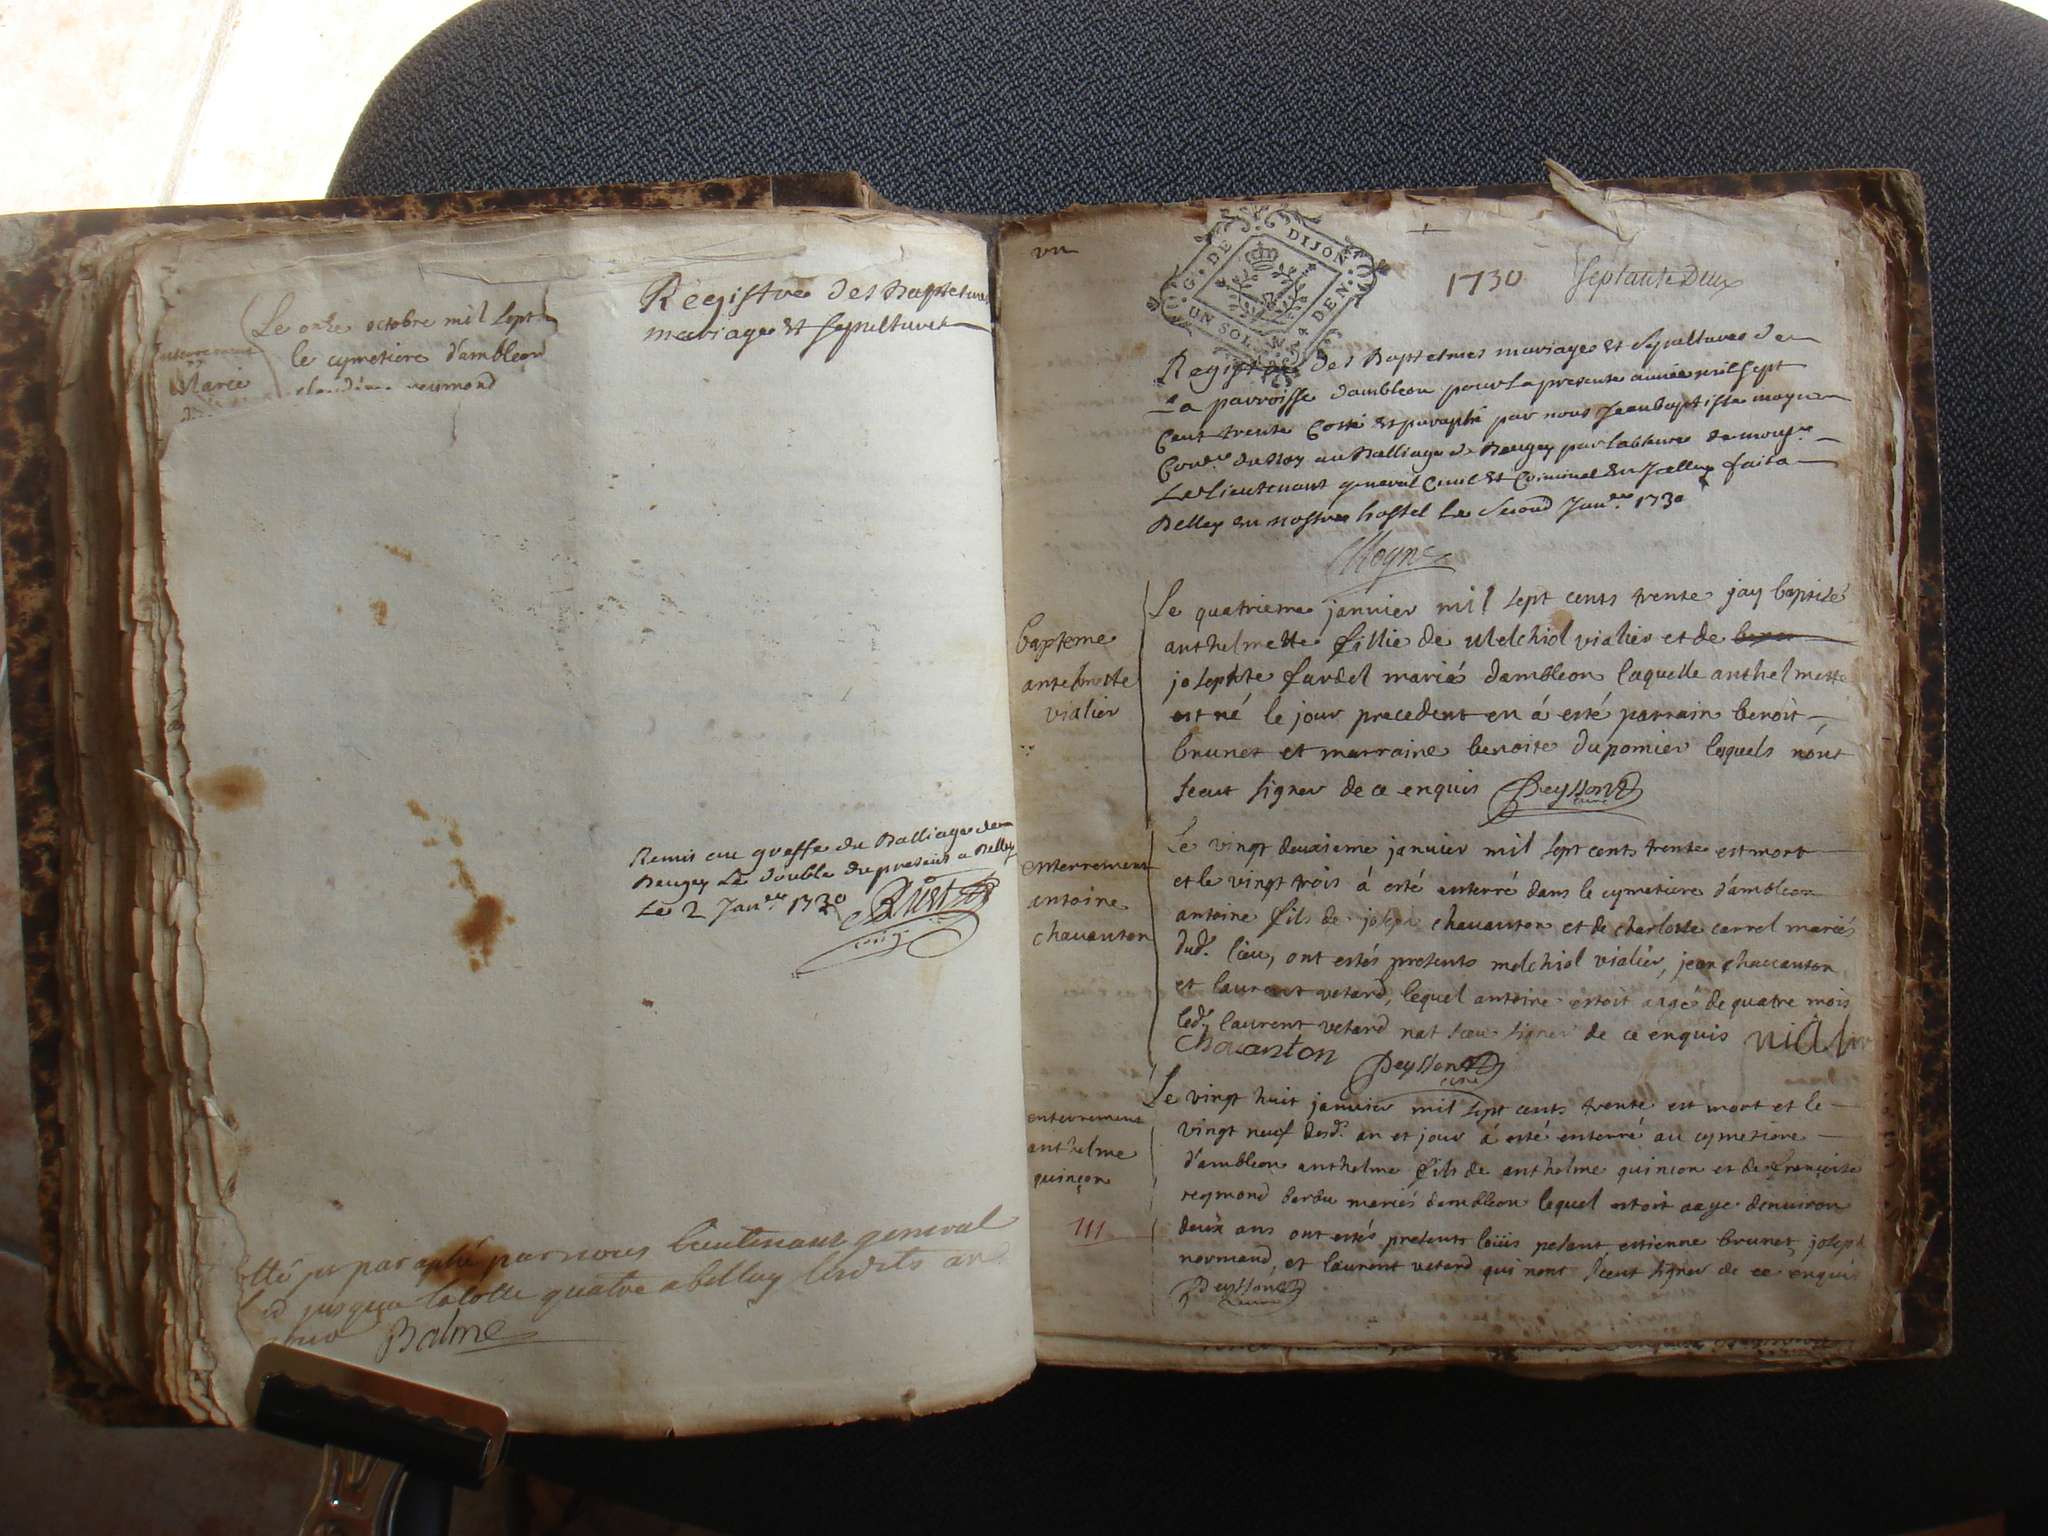 Le onze octobre mil sept
le cymetiere d'ambleon
reymond
enterrement
Marie
Registre des Baptesmes
mariages et sepultures
Remis au greffe du Balliage de
Beugey Le double du present a Belley
Le 2 Janer 1730
cotté et paraphé par nous lieutenant general
jusqua la cotte quatre a belley lesdits an
Balme
un
G. DE DIJON
UN SOL
DEN.
1730 Septante Deux
Registre des Baptesmes mariages et Sepultures de
La parroisse dambleon pour La presente année mil sept
Cent trente Cotté et paraphé par nous Jean baptiste moyne
Coner du Roy au Balliage de Beugey par labsence de monsr
Le Lieutenant general Civil et Criminel en Jcelluy fait a
Belley en nostre hostel Le Second Janer 1730
Moyne
bapteme
antelmette
vialier
Le quatrieme janvier mil sept cents trente jay baptisé
anthelmette fillie de Melchiol vialier et de
josephte fardel mariés dambleon laquelle anthelmette
est né le jour precedent en á esté parrain benoit
brunet et marraine benoite dupomier lesquels n'ont
sceut signer de ce enquis Peyssonet
curé
enterrement
antoine
chavanton
Le vingt deuxieme janvier mil sept cents trente est mort
et le vingt trois á esté enterré dans le cymetiere d'ambleon
antoine fils de joseph chavanton et de charlotte carrel mariés
dud. lieu, ont estés presents melchiol vialier, jean chavanton
et laurent vetard, lequel antoine estoit aagé de quatre mois
led. laurent vetard nat sceu signer de ce enquis vialier
chavanton Peyssonet
curé
enterrement
anthelme
quinçon
111
Le vingt huit janvier mil sept cents trente est mort et le
vingt neuf desd. an et jour á esté enterré au cymetiere
d'ambleon anthelme fils de anthelme quincon et de françoise
reymond mariés dambleon lequel estoit aage denviron
deux ans ont estés presents loüis pelant estienne brunet, joseph
normand, et laurent vetard qui nont sceut signer de ce enquis
Peyssonet
curé